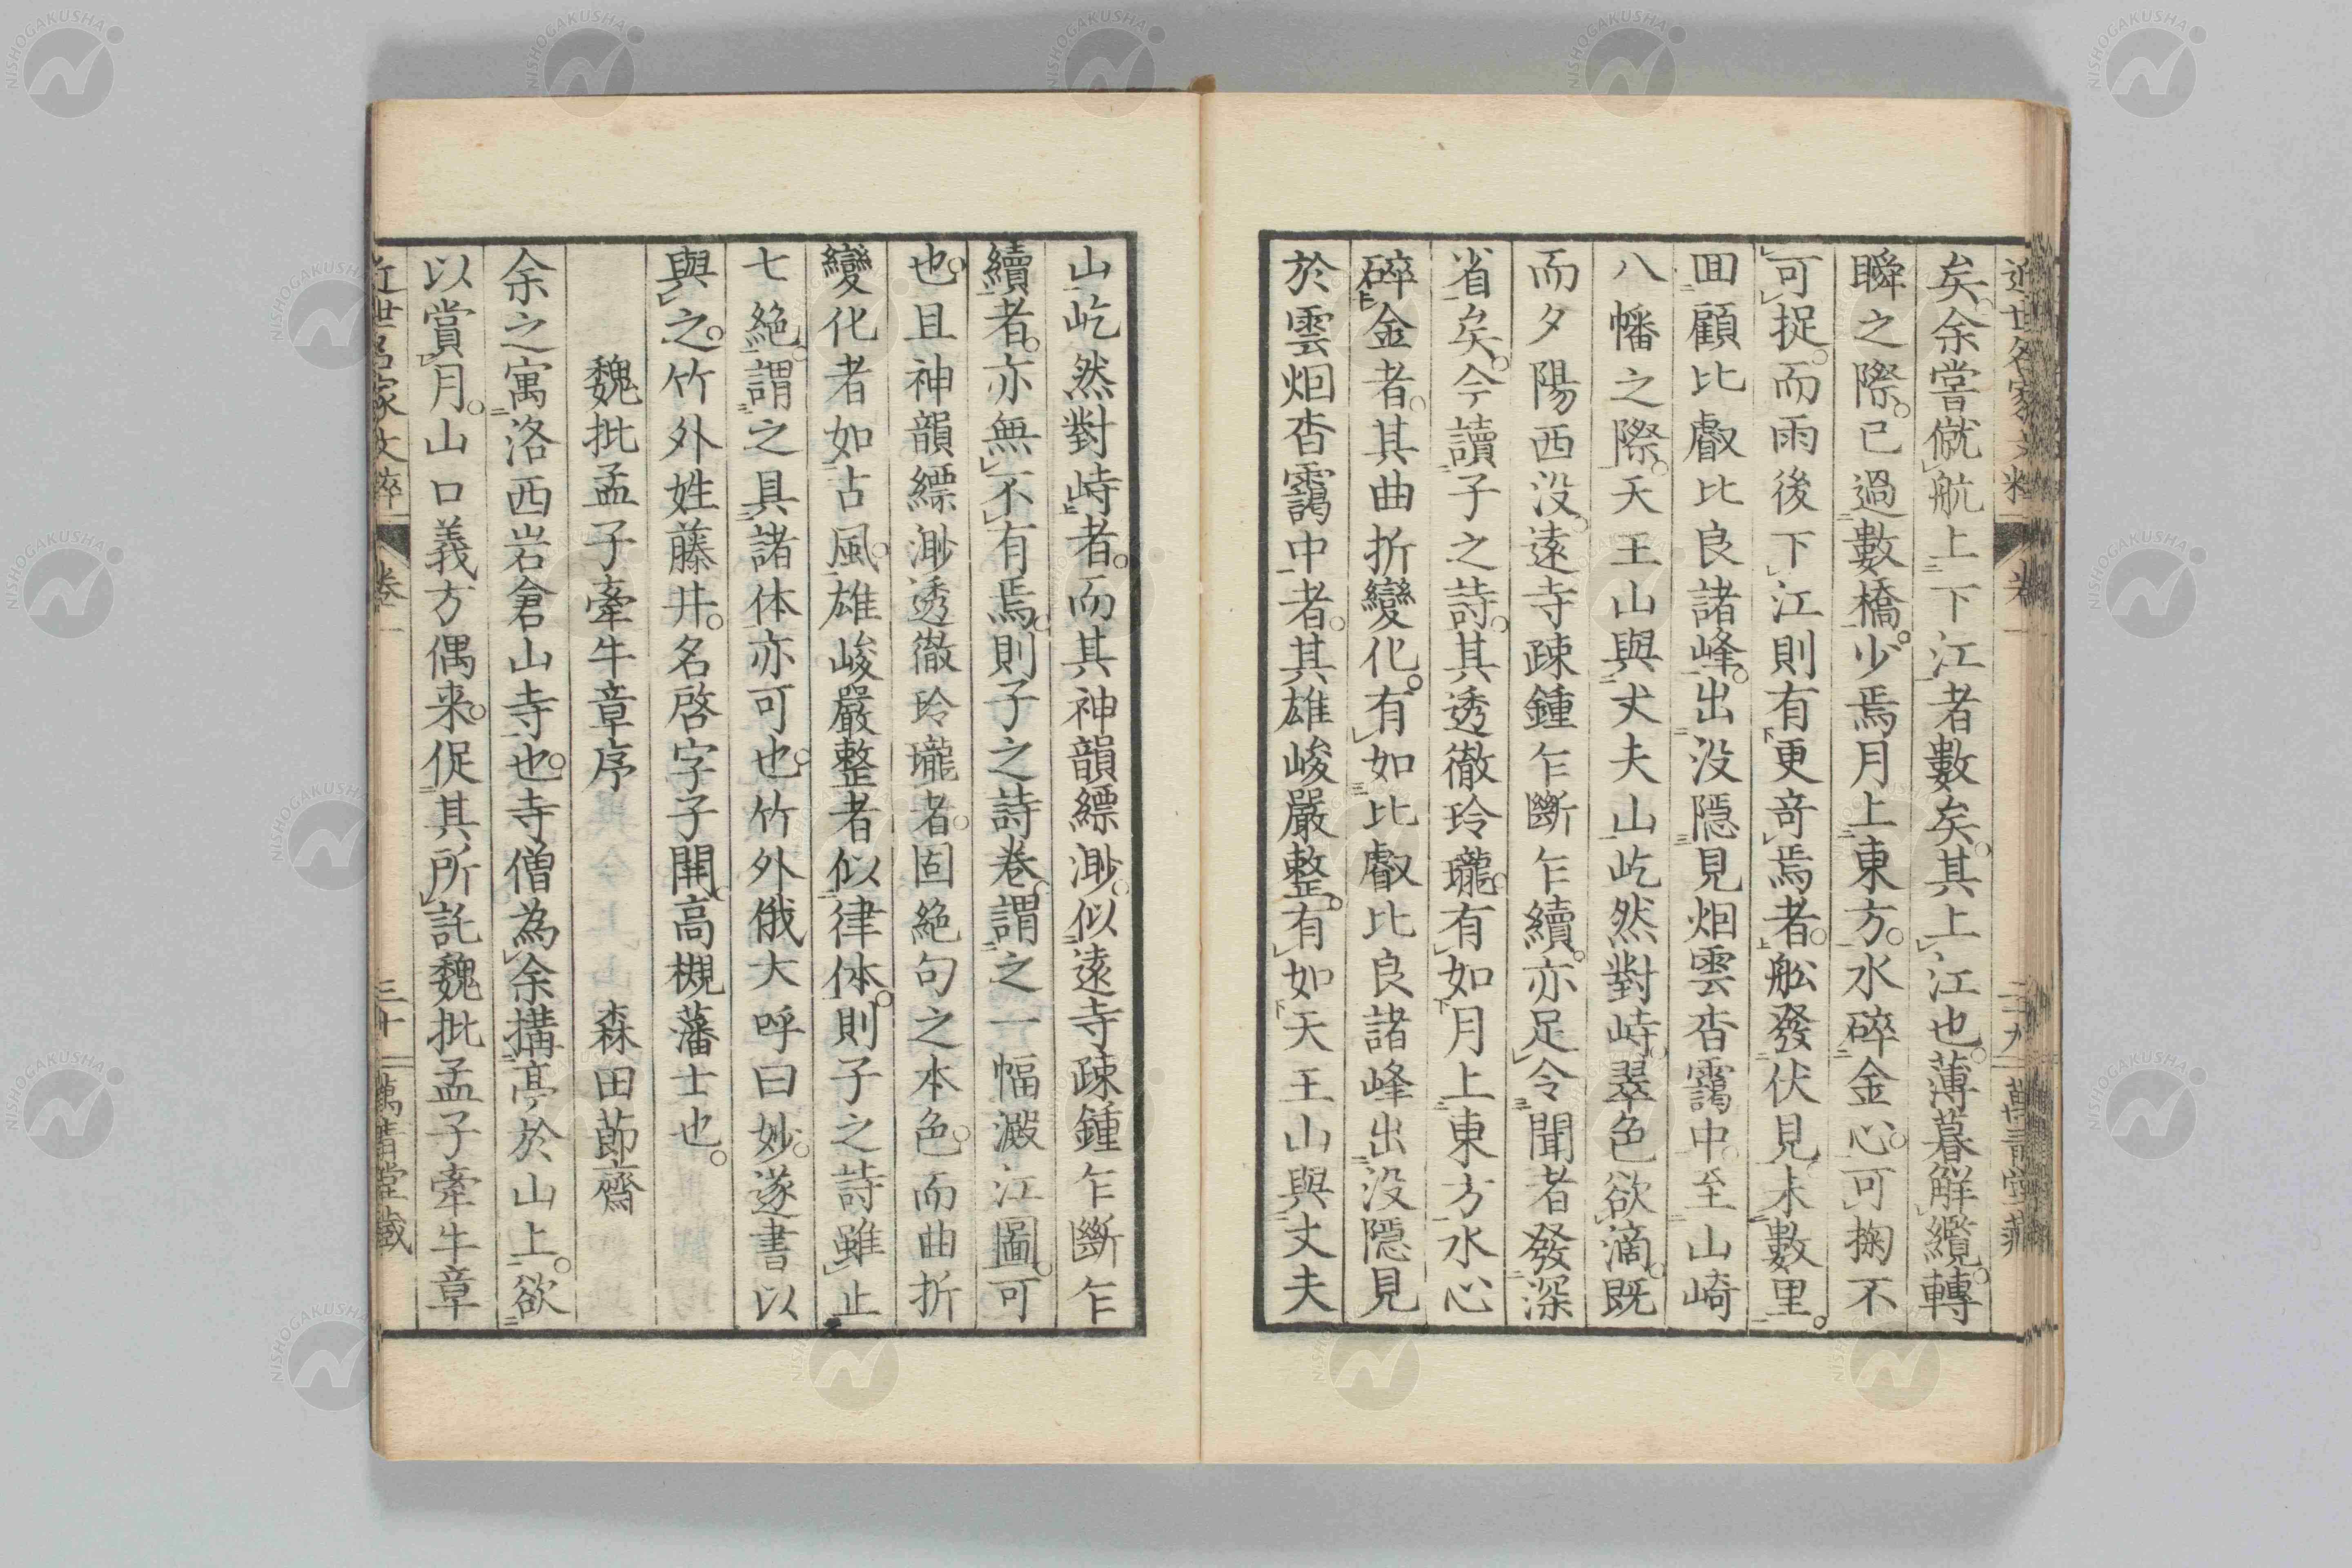 矣。余嘗僦航上下江者數矣。其上江也。薄暮解纜。轉
瞬之際。已過數橋。少焉月上東方。水碎金心。可掬不
可捉。而雨後下江則有更奇焉者。舩發伏見未數里。
回顧比叡比良諸峰。出沒隱見烟雲杳靄中。至山崎
八幡之際。天王山與丈夫山屹然對峙。翠色欲滴。既
而夕陽西沒。遠寺疎鍾乍斷乍續。亦足令聞者發深
省矣。今讀子之詩。其透徹玲瓏。有如月上東方水心
碎金者。其曲折變化。有如比叡比良諸峰出沒隱見
於雲烟杳靄中者。其雄峻嚴整。有如天王山與丈夫
山屹然對峙者。而其神韻縹渺。似遠寺疎鍾乍斷乍
續者。亦無不有焉。則子之詩卷。謂之一幅澱江圖可
也。且神韻縹渺透徹玲瓏者。固絶句之本色。而曲折
變化者如古風。雄峻嚴整者似律体。則子之詩雖止
七絶。謂之具諸体亦可也。竹外俄大呼曰妙。遂書以
與之。竹外姓藤井。名啓字子開。高槻藩士也。
魏批孟子牽牛章序　森田節齋
余之寓洛西岩倉山寺也。寺僧為余搆亭於山上。欲
以賞月。山口義方偶来。促其所託魏批孟子牽牛章
近世名家文粹 卷一 三十 萬青堂藏